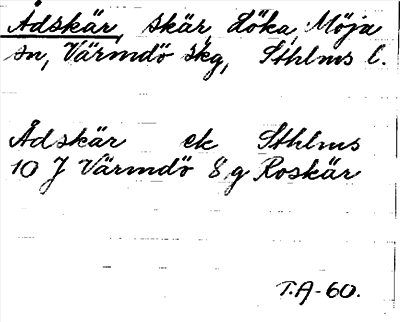 Ådskär, skär döka, Möja
sn, Värmdö skg, Sthlms l.
Ådskär ek Sthlms
10 J Värmdö 8 g Roskär
T.A-60.